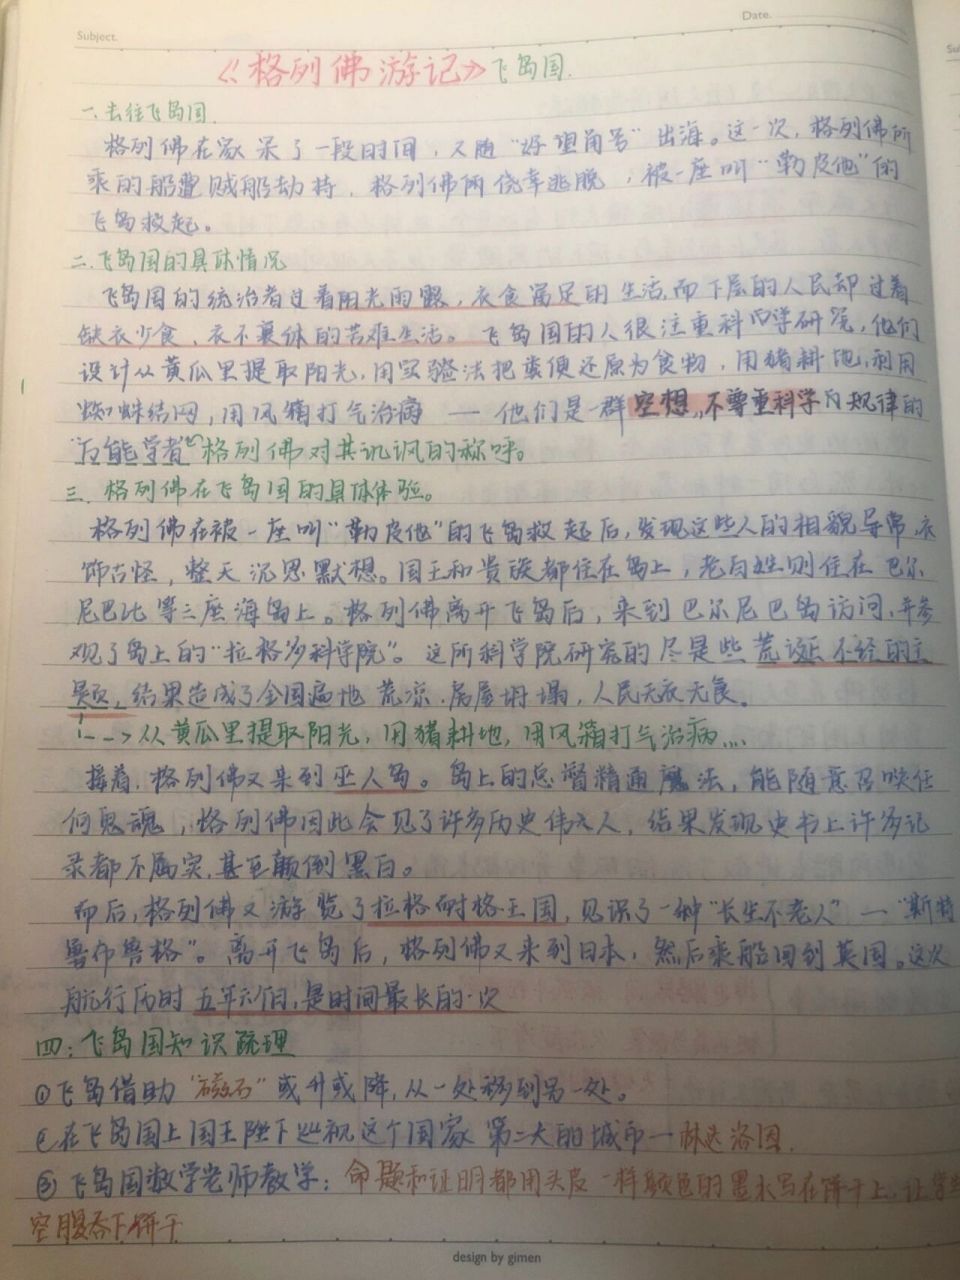 Date.
Subject.
《格列佛游记》飞岛国.
一.去往飞岛国.
格列佛在家呆了一段时间，又随“好望角号”出海。这一次，格列佛所
乘的船遭贼船劫持，格列佛侥幸逃脱，被一座叫“勒皮他”的
飞岛救起。
二.飞岛国的具体情况
飞岛国的统治者过着阳光雨露，衣食富足的生活,而下层的人民却过着
缺衣少食，衣不裹体的苦难生活。飞岛国的人很注重科学研究,他们
设计从黄瓜里提取阳光,用实验法把粪便还原为食物，用猪耕地,利用
蜘蛛结网，用风箱打气治病——他们是一群空想,不尊重科学规律的
“万能学者”格列佛对其讥讽的称呼。
三.格列佛在飞岛国的具体体验。
格列佛在被一座叫“勒皮他”的飞岛救起后,发现这些人的相貌异常,衣
饰古怪，整天沉思默想。国王和贵族都住在岛上，老百姓则住在巴尔
尼巴比等三座海岛上。格列佛离开飞岛后，来到巴尔尼巴岛访问,并参
观了岛上的“拉格多科学院”。这所科学院研究的尽是些荒诞不经的主
题,结果造成了全国遍地荒凉,房屋坍塌，人民无衣无食。
从黄瓜里提取阳光，用猪耕地，用风箱打气治病....
接着,格列佛又来到巫人岛。岛上的总督精通魔法，能随意召唤任
何鬼魂，格列佛因此会见了许多历史伟人，结果发现史书上许多记
录都不属实,甚至颠倒黑白。
而后,格列佛又游览了拉格耐格王国，见识了一种“长生不老人”—“斯特
鲁布鲁格”。离开飞岛后，格列佛又来到日本，然后乘船回到英国。这次
航行历时五年六个月,是时间最长的一次
四:飞岛国知识疏理
①飞岛借助“磁石”或升或降,从一处移到另一处。
②在飞岛国上国王陛下巡视这个国家第二大的城市—林达洛因.
③飞岛国数学老师教学：命题和证明都用头皮一样颜色的墨水写在饼干上,让学生
空腹吞下饼干
design by gimen